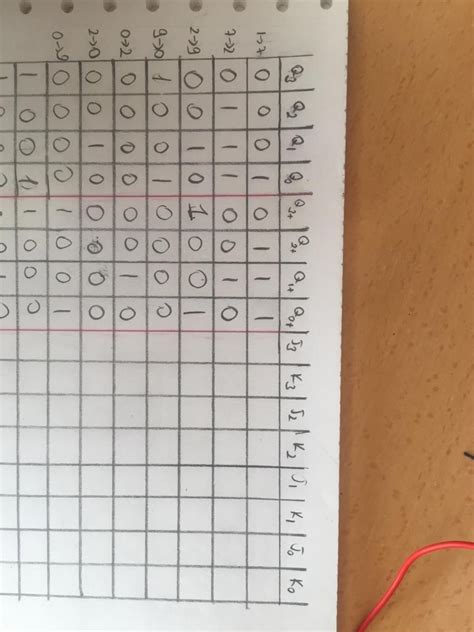 Q3 | Q2 | Q1 | Q0 | Q3+ | Q2+ | Q1+ | Q0+ | J3 | K3 | J2 | K2 | J1 | K1 | J0 | K0
1→7 0 0 0 1 0 1 1 1
7→2 0 1 1 1 0 0 1 0
2→9 0 0 1 0 1 0 0 1
9→0 1 0 0 1 0 0 0 0
0→2 0 0 0 0 0 0 1 0
2→0 0 0 1 0 0 0 0 0
0→9 0 0 0 0 1 0 0 1
1 0 0 1 1 0 0 0